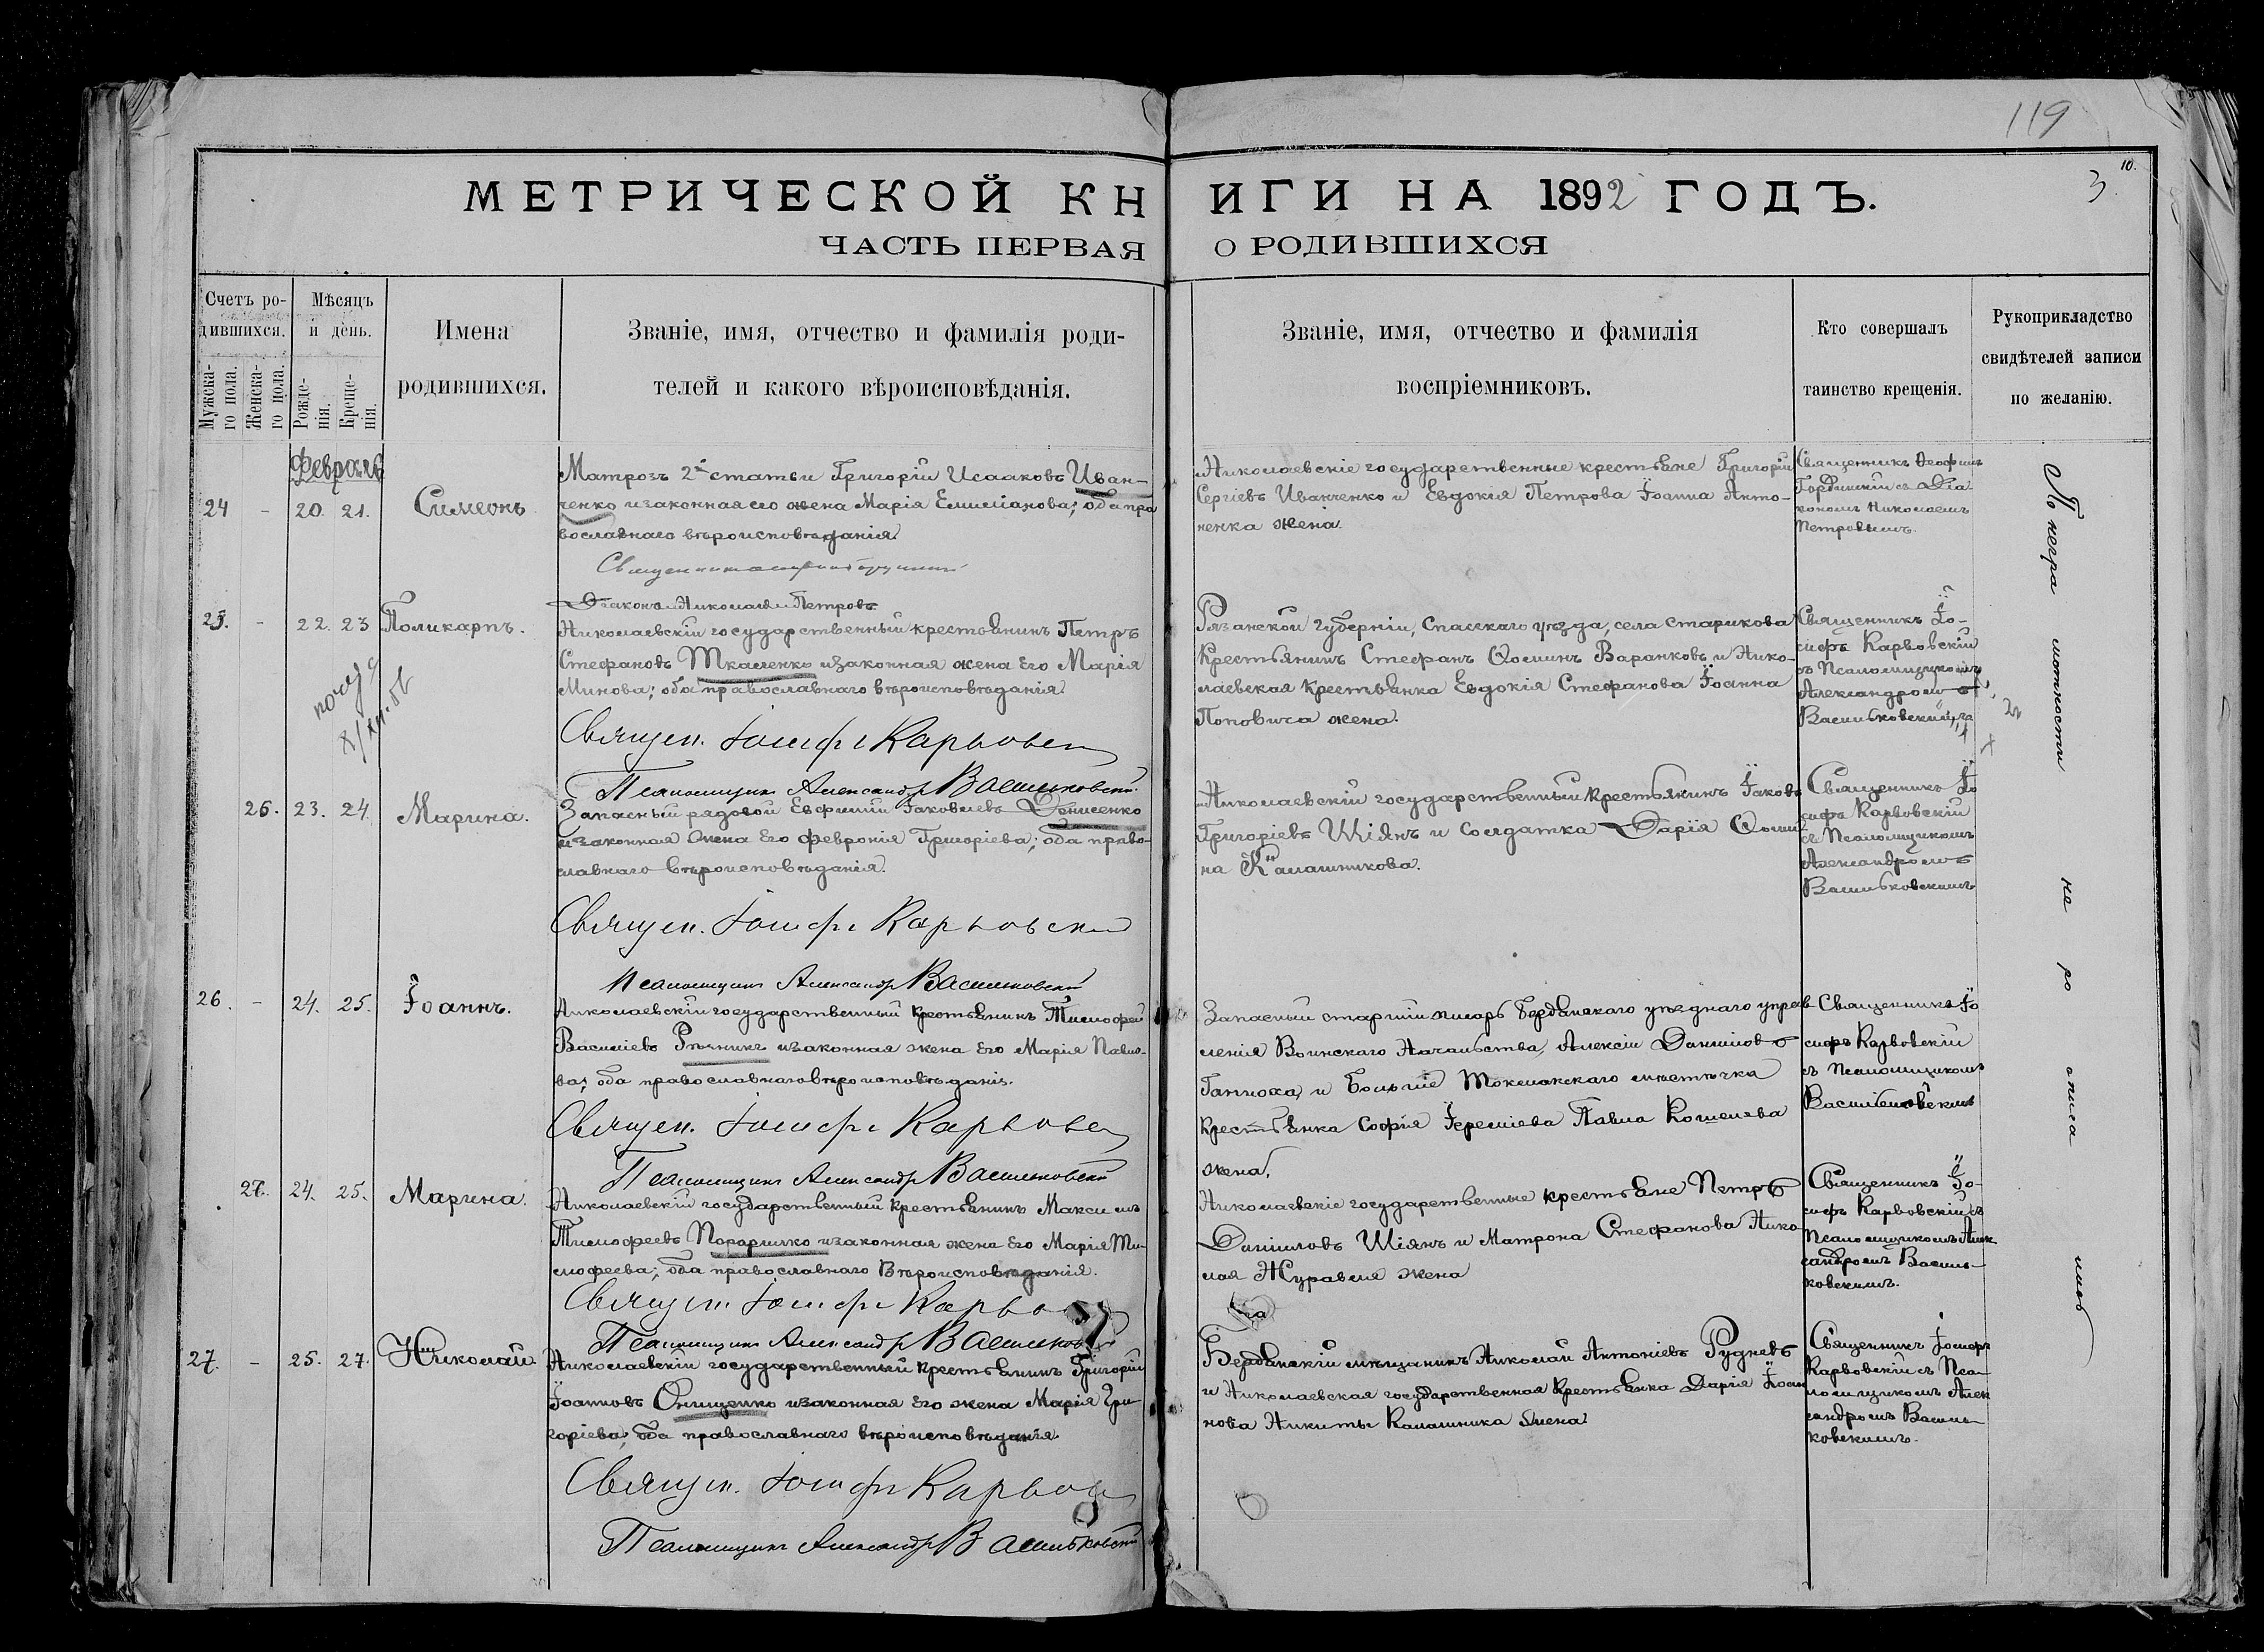 119
10.
3.
МЕТРИЧЕСКОЙ КНИГИ НА 1892 ГОДЪ.
ЧАСТЬ ПЕРВАЯ О РОДИВШИХСЯ
Счетъ ро-
дившихся.
Мужска-
го пола.
Женска-
го пола.
Мѣсяцъ
и день.
Рожде-
нія.
Креще-
нія.
Имена
родившихся.
Званіе, имя, отчество и фамилія роди-
телей и какого вѣроисповѣданія.
Званіе, имя, отчество и фамилія
воспріемниковъ.
Кто совершалъ
таинство крещенія.
Рукоприкладство
свидѣтелей записи
по желанію.
Февраль
24 - 20. 21. Симеонъ
Матрозъ 2й статьи Григорій Исааковъ Иван-
ченко и законная его жена Марія Емиліанова; оба пра
вославнаго вѣроисповѣданія.
Діаконъ Николай Петровъ
Николаевскіе государственные крестьяне Григорій
Сергіевъ Иванченко и Евдокія Петрова Іоанна Анто-
ненка жена.
Священникъ Ѳеофилъ
Гордишскій съ Діа-
кономъ Николаемъ
Петровымъ.
25. - 22. 23 Поликарпъ.
Николаевскій государственный крестьянинъ Петръ
Стефановъ Ткаченко и законная жена его Марія
Минова; оба православнаго вѣроисповѣданія.
Священ. Іосифъ Карвовск
Псаломщикъ Александръ Васильковскій
Рязанской губерніи, Спасскаго уѣзда, села Старикова
крестьянинъ Стефанъ Ѳоминъ Варанковъ и Нико-
лаевская крестьянка Евдокія Стефанова Іоанна
Поповича жена.
Священникъ Іо-
сифъ Карвовскій
съ Псаломщикомъ
Александромъ
Васильковскимъ
26. 23. 24. Марина.
Запасный рядовой Евфимій Іаковлевъ Денисенко
и законная жена его Февронія Григоріева; оба право-
славнаго вѣроисповѣданія.
Священ. Іосифъ Карвовскій
Псаломщикъ Александръ Васильковскій
Николаевскій государственный крестьянинъ Іаковъ
Григоріевъ Шіянъ и солдатка Дарія Ѳоми-
на Калашникова.
Священникъ Іо
сифъ Карвовскій
съ Псаломщикомъ
Александромъ
Васильковскимъ
26. - 24. 25. Іоаннъ.
Николаевскій государственный крестьянинъ Тимофей
Василіевъ Рѣзникъ и законная жена его Марія Павло-
ва; оба православнаго вѣроисповѣданія.
Священ. Іосифъ Карвовск
Псаломщикъ Александръ Васильковскій
Запасный старшій писарь Бердянскаго уѣзднаго управ
ленія Воинскаго Начальства, Алексій Даниловъ
Гапноха, и Больше Токмакскаго мѣстечка
крестьянка Софія Іереміева Павла Кошелева
жена.
Священникъ Іо
сифъ Карвовскій
съ Псаломщикомъ
Васильковскимъ
27. 24. 25. Марина.
Николаевскій государственный крестьянинъ Максимъ
Тимофеевъ и законная жена его Марія Ти-
мофеева; оба православнаго вѣроисповѣданія.
Священ. Іосифъ Карво
Псаломщикъ Александръ Васильков
Николаевскіе государственные крестьяне Петръ
Даниловъ Шіянъ и Матрона Стефанова Нико-
лая Журавля жена
Священникъ Іо-
сифъ Карвовскій съ
Псаломщикомъ Алек
сандромъ Василь-
ковскимъ.
27. - 25. 27. Николай
Николаевскій государственный крестьянинъ Григорій
Іоанновъ Онищенко и законная его жена Марія Гри-
горіева, оба православнаго вѣроисповѣданія.
Священ. Іосифъ Карвов
Псаломщикъ Александръ Васильковскій
Бердянскій мѣщанинъ Николай Антоніевъ Рудневъ
и Николаевская государственная крестьянка Дарія Іоан
нова Никиты Калашника жена.
Священникъ Іосифъ
Карвовскій съ Пса-
ломщикомъ Алек
сандромъ Василь-
ковскимъ.